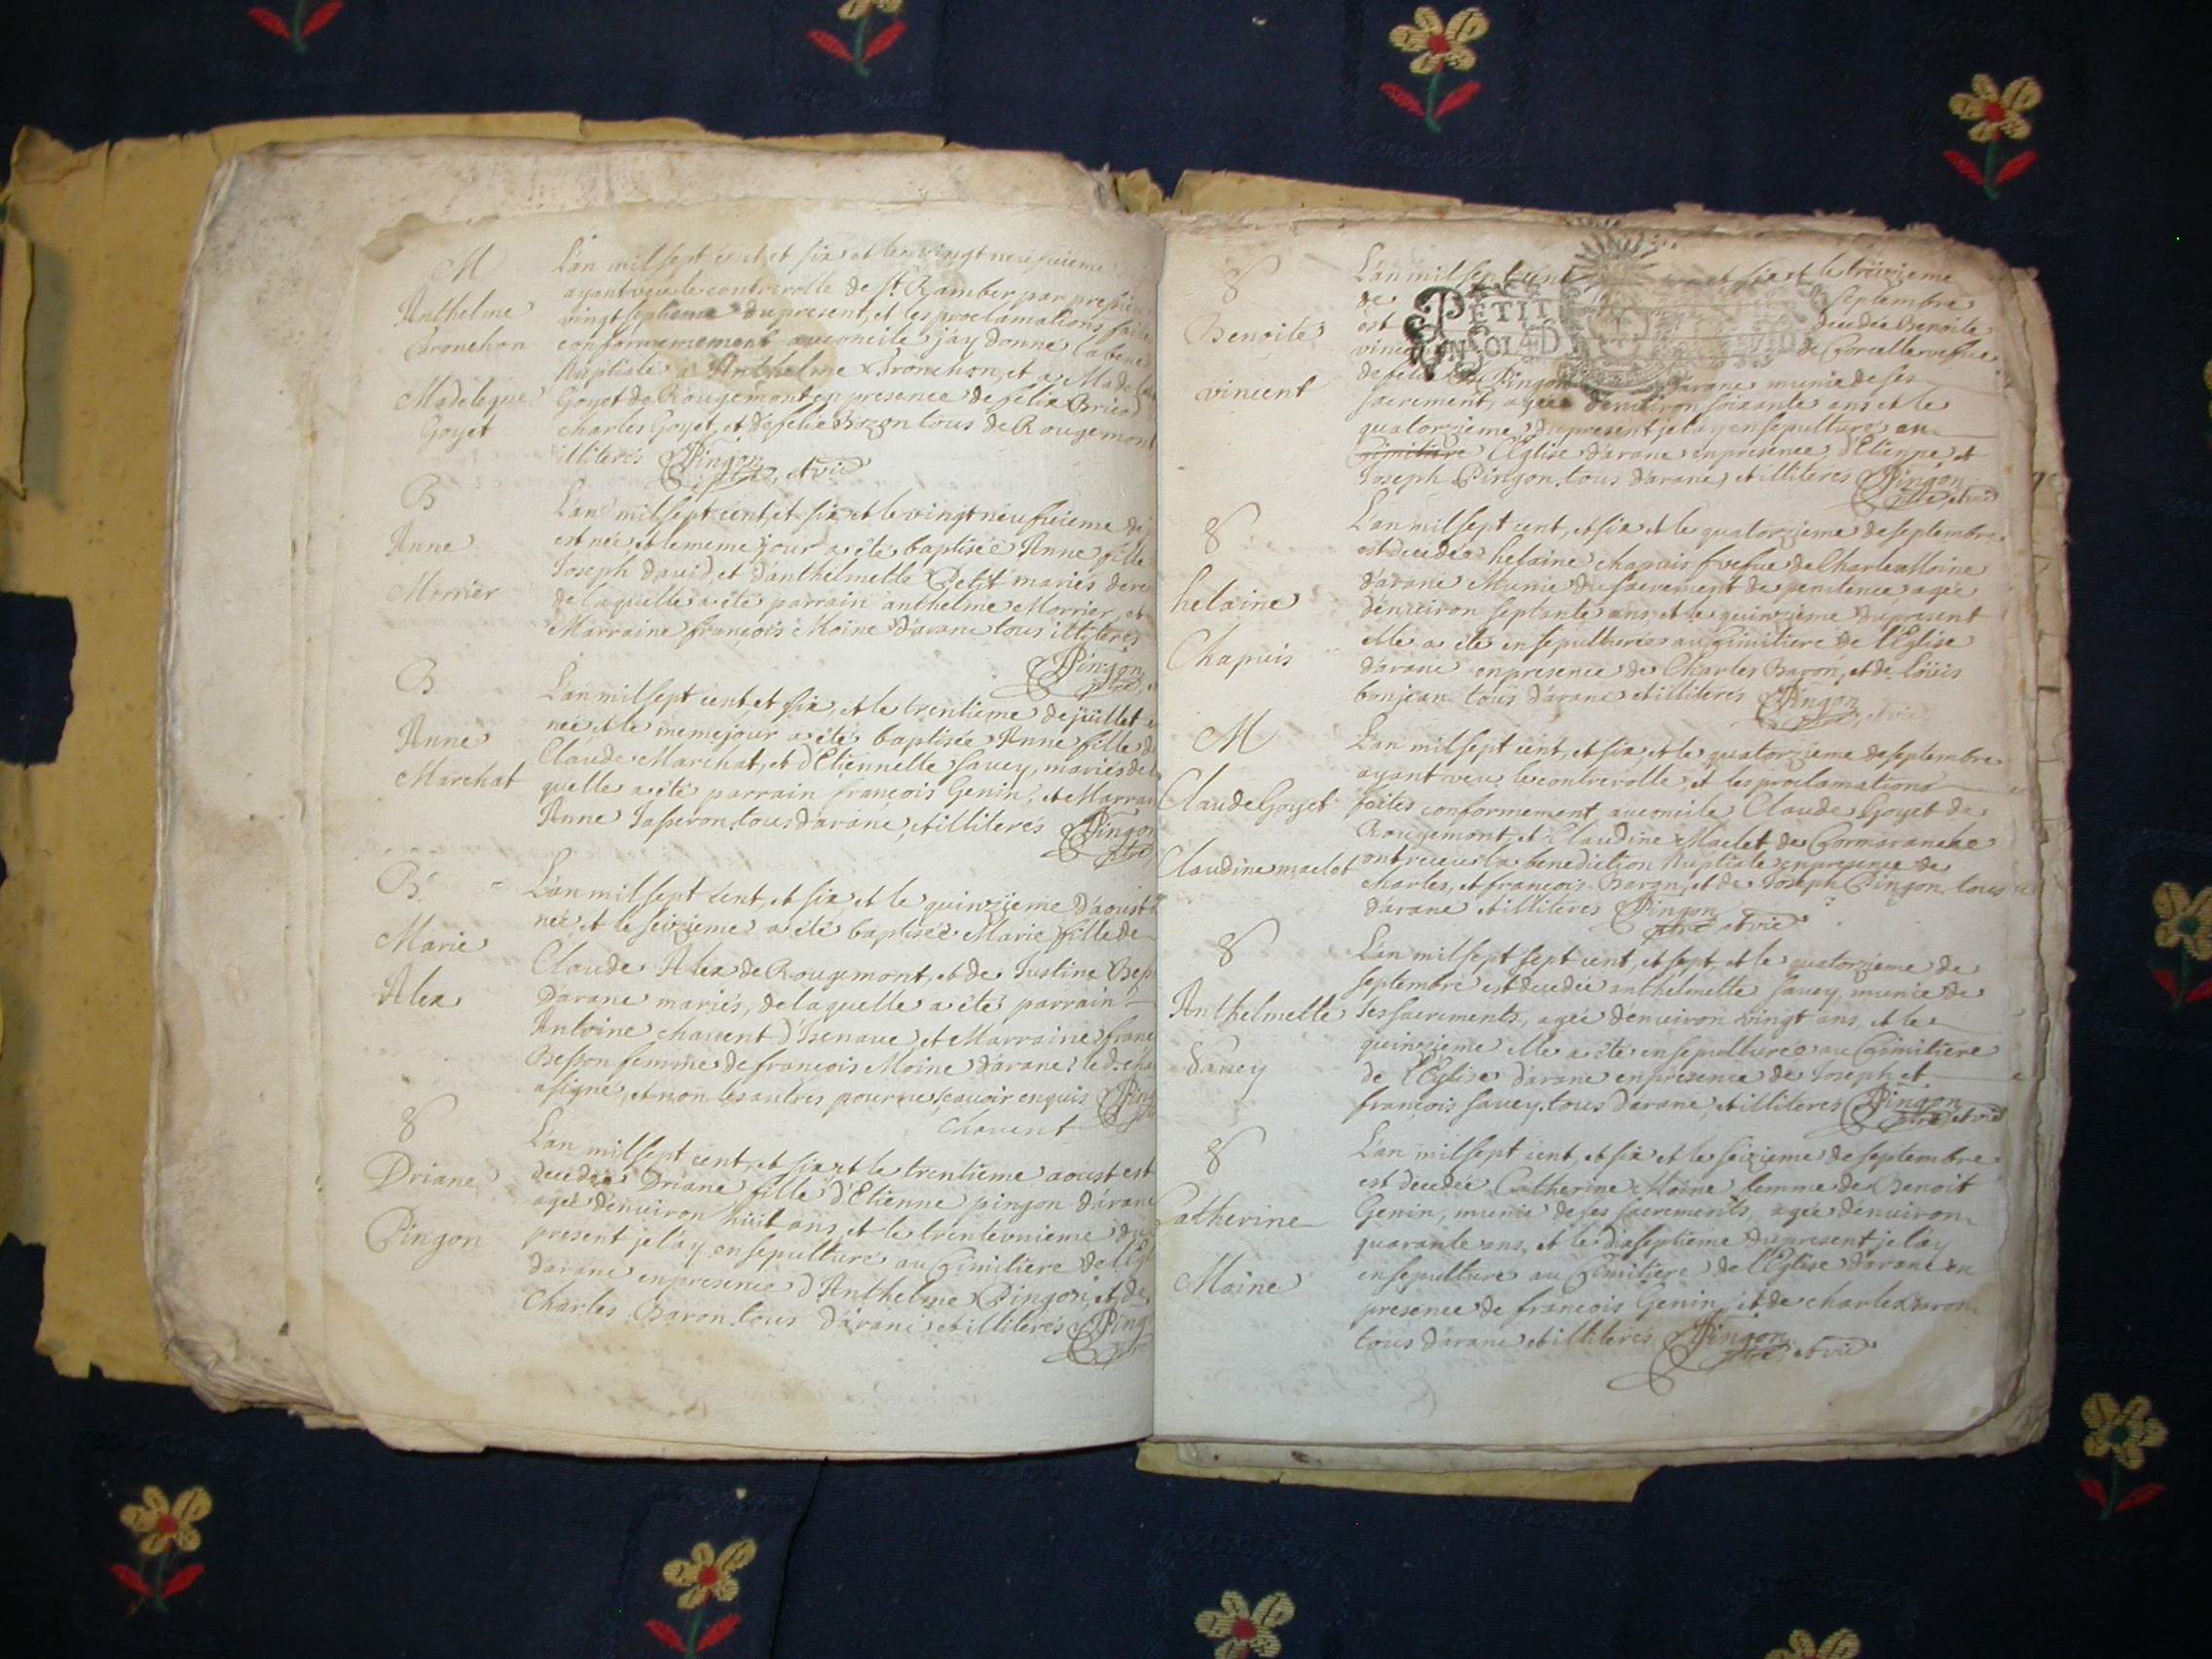 M
Anthelme
Tronchon
Madelegne
Goyet
L'an mil sept cent, et six et le vingt neufvieme
ayant veu le controrolle de St Ramber par
vingt septieme du present, et les proclamations faites
conformement au concile j'ay donné la
Nuptiale a Anthelme Tronchon, et a
Goyet de Rougemont en presence de felix
charles Goyet, et de felix Bozon tous de Rougemont
illiterés Pingon
ptre, et vic
B
Anne
Morrier
L'an mil sept cent, et six, et le vingt neufvieme
est née, et le meme jour a eté baptisée Anne fille
Joseph david, et d'anthelmette Petit mariés
de laquelle a eté parrain anthelme Morrier, et
Marraine françois Moine d'arane tous illiterés
Pingon
ptre
B
Anne
Marchat
L'an mil sept cent, et six, et le trentieme de jüillet
née et le meme jour a eté baptisée Anne fille de
Claude Marchat, et d'Etiennette Savey, mariés de
quelle a eté parrain françois Genin, et
Anne Tasseron, tous d'arane, et illiterés Pingon
ptre
B
Marie
Alex
L'an mil sept cent, et six et le quinzieme d'aoust
née, et le seizieme a eté baptisée Marie fille de
Claude Alex de Rougemont, et de Justine
d'arane mariés, de laquelle a eté parrain
Antoine chavent d'Isenave, et Marraine
Besson femme de francois Moine d'arane: led.
a signé, et non les autres pour ne sçavoir enquis
Chavent
8
Driane
Pingon
L'an mil sept cent, et six et le trentieme aoust est
decedée Driane fille d'Etienne pingon d'arane
agée d'enuiron hüit ans, et le trente unieme du
present je l'ay ensepulturé au Cimitiere de
d'arane en presence d'Anthelme Pingon, et de
Charles Baron, tous d'arane et illiterés
8
Benoite
vincent
L'an mil sept cent et six et le treizieme
de septembre
est decedée Benoite
de Corcelle vefue
Pingon d'arane munie de ses
sacrement, agée d'enuiron soixante ans et le
quatorzieme du present je l'ay ensepulturé au
Cimitiere l'Eglise d'arane en presence d'Etienne, et
Joseph Pingon, tous d'arane, et illiterés Pingon
ptre, et vic
PETIT
8
helaine
Chapuis
L'an mil sept cent, et six et le quatorzieme de septembre
est decedée helaine chapuis vefue de Charles Moine
d'arane Munie du sacrement de penitence agée
d'enuiron septante ans, et le quinzieme du present
elle a eté ensepulturée au Cimitiere de l'Eglise
d'arane en presence de Charles Baron, et de Loüis
bonjean tous d'arane et illiterés Pingon
ptre, et vic
M
Claude Goyet
Claudine maclet
L'an mil sept cent, et six et le quatorzieme de septembre
ayant veu le controrolle, et les proclamations
faites conformement au concile Claude Goyet de
Rougemont, et Claudine Maclet de Cormaranche
ont receu la benediction Nuptiale en presence de
charles, et francois Baron, et de Joseph Pingon tous
d'arane et illiterés Pingon
ptre et vic
8
Anthelmette
Savey
L'an mil sept sept cent, et sept, et le quatorzieme de
septembre est decedée anthelmette Savey, munie de
ses sacrements, agée d'enuiron vingt ans, et le
quinzieme elle a eté ensepulturée au Cimitiere
de l'Eglise d'arane en presence de Joseph, et
francois Savey, tous d'arane, et illiterés Pingon
ptre et vic
8
Catherine
Moine
L'an mil sept cent, et six et le seizieme de septembre
est decedée Catherine Moine femme de Benoit
Genin, munie de ses sacrements, agée d'enuiron
quarante ans, et le dixseptieme du present je l'ay
ensepulturé au Cimitiere de l'Eglise d'arane en
presence de francois Genin, et de charles Baron
tous d'arane et illiterés Pingon
ptre, et vic